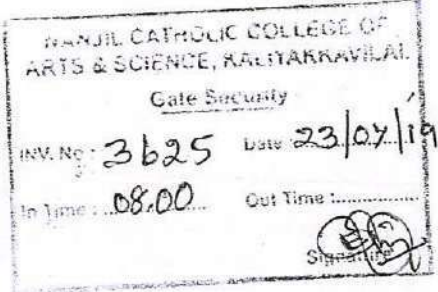 NANJIL CATHOLIC COLLEGE OF
ARTS & SCIENCE, KALIYAKKAVILAI.
Gate Security
INV. No : 3625 Date 23/07/19
In Time : 08.00 Out Time :
Signature